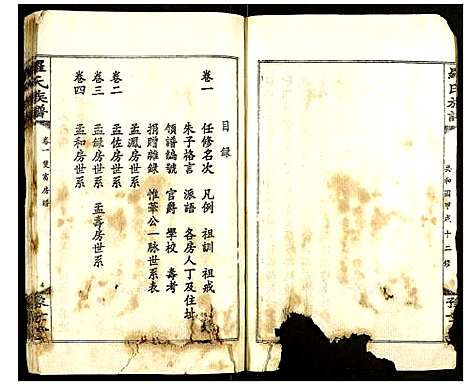 羅氏族譜
共和國甲戌十二修
目錄
卷一
任修名次 凡例 祖訓 祖戒
朱子格言 派語 各房人丁及住址
領譜編號 官爵 學校 壽考
捐贈雜錄 惟華公一脉世系表
孟鳳房世系
卷二
孟佐房世系
卷三
孟錄房世系 孟壽房世系
卷四
孟和房世系
羅氏族譜
卷一
豫章堂